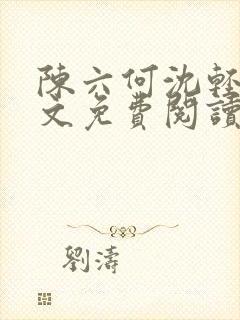 陳六何沈輕
文免費閱讀
劉濤